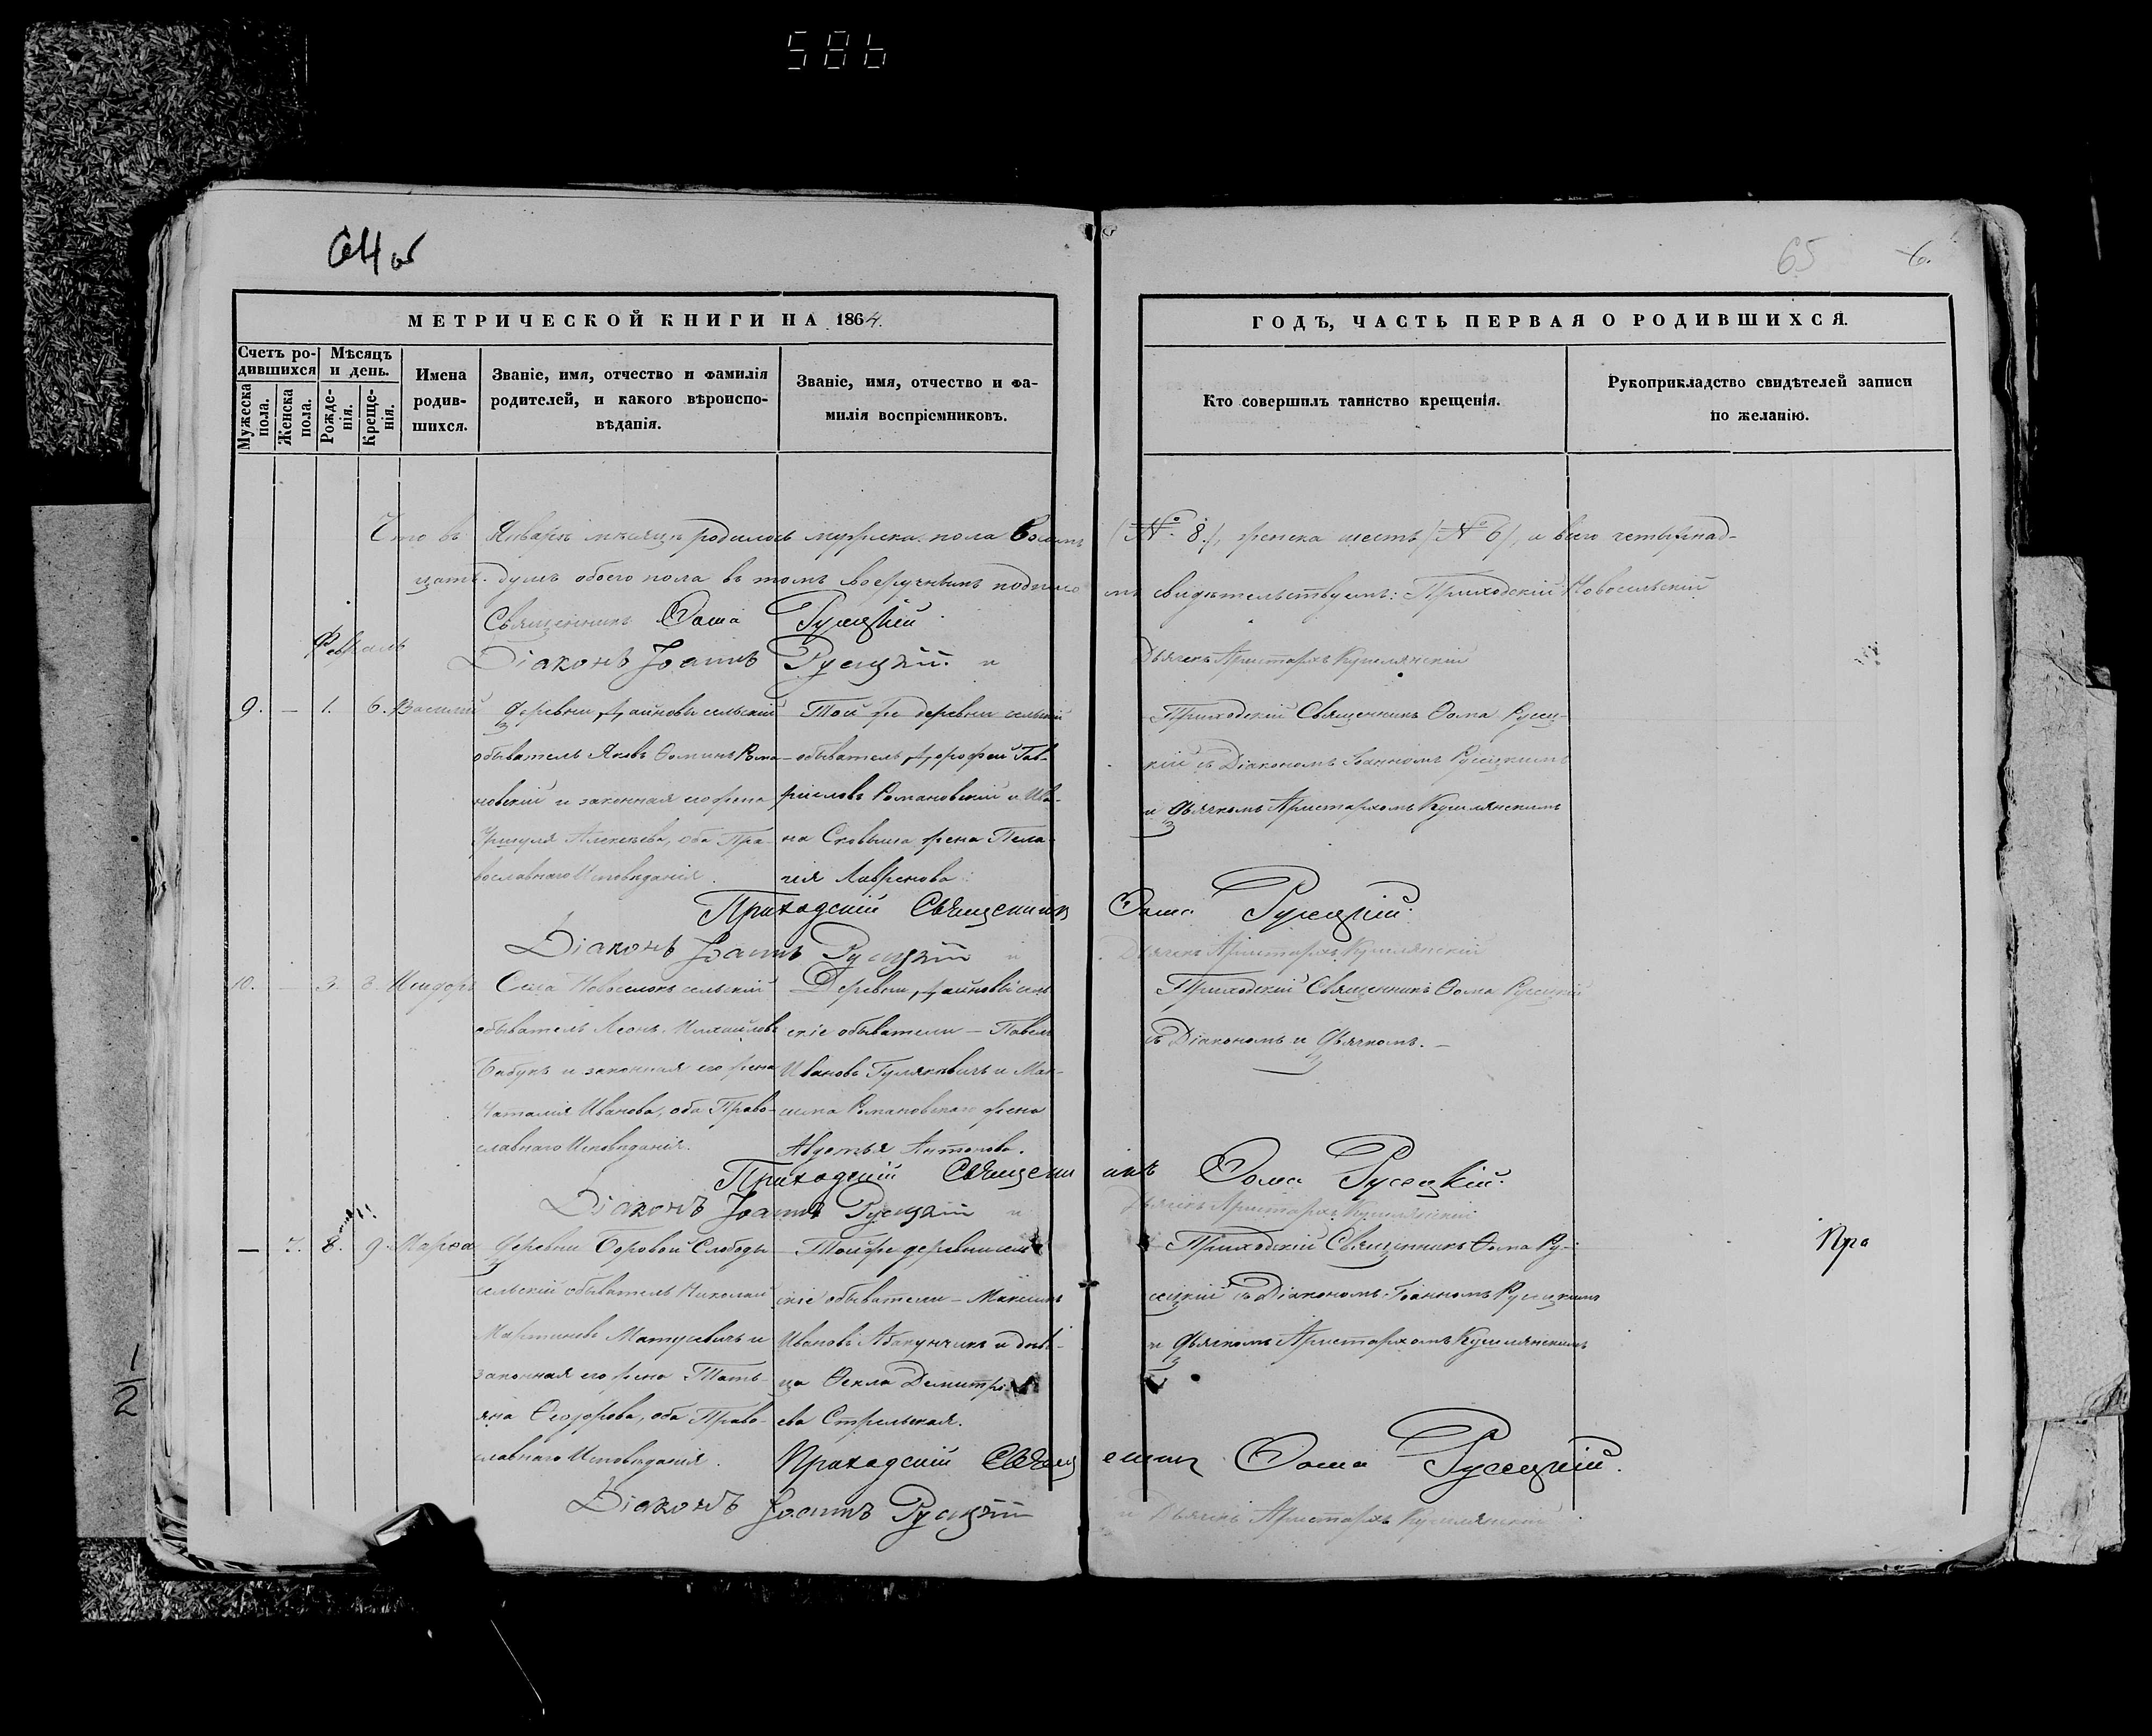 586
64 об
65
6.
МЕТРИЧЕСКОЙ КНИГИ НА 1864.
Счетъ ро-
дившихся
Мѣсяцъ
и день.
Мужеска
пола.
Женска
пола.
Рожде-
нія.
Креще-
нія.
Имена
родив-
шихся.
Званіе, имя, отчество и фамилія
родителей, и какого вѣроиспо-
вѣданія.
Званіе, имя, отчество и фа-
милія воспріемниковъ.
ГОДЪ, ЧАСТЬ ПЕРВАЯ О РОДИВШИХСЯ.
Кто совершилъ таинство крещенія.
Рукоприкладство свидѣтелей записи
по желанію.
Что въ Январѣ мѣсяцѣ родилось мужеска пола восемь (№ 8.), женска шесть (№ 6), и всего четырнад-
цать душъ обоего пола въ томъ своеручнымъ подписомъ свидѣтельствуемъ: Приходскій Новосельскій
Священникъ Ѳома Русецкій
Діаконъ Іоаннъ Русецкій и Дьячекъ Аристархъ Кушлянскій
Февраль
9. — 1. 6. Василій
деревни сельскій
обыватель Яковъ Ѳоминъ Рома-
новскій и законная его жена
Алексѣева, оба Пра-
вославнаго Исповѣданія.
Той же деревни сельскій
обыватель Дорофей Гав-
риловъ Романовскій и Ива-
на жена Пела-
гія
Приходскій Священникъ Ѳома Русец-
кій съ Діакономъ Іоанномъ Русецкимъ
и дьячкомъ Аристархомъ Кушлянскимъ
Приходскій Священникъ Ѳома Русецкій.
Діаконъ Іоаннъ Русецкій и Дьячекъ Аристархъ Кушлянскій
10. — 3. 8. Исидоръ
Села Новоселокъ сельскій
обыватель Леонъ Михайловъ
Бабукъ и законная его жена
Наталія Иванова, оба Право-
славнаго Исповѣданія.
Деревни сель-
скіе обыватели — Павелъ
Ивановъ и Мак-
сима Романовскаго жена
Авдотья Антонова.
Приходскій Священникъ Ѳома Русецкій
съ Діакономъ и Дьячкомъ. —
Приходскій Священникъ Ѳома Русецкій.
Діаконъ Іоаннъ Русецкій и Дьячекъ Аристархъ Кушлянскій
— 7. 8. 9. Марѳа
деревни Боровой Слободы
сельскій обыватель Николай
Мартиновъ Матусевичъ и
законная его жена Тать-
яна Ѳеодорова, оба Право-
славнаго Исповѣданія.
Той же деревни сель-
скіе обыватели — Максимъ
Ивановъ Абакунчикъ и дѣви-
ца Ѳекла Димитрі-
ева Стрельская.
Приходскій Священникъ Ѳома Ру-
сецкій съ Діакономъ Іоанномъ Русецкимъ
и дьячкомъ Аристархомъ Кушлянскимъ
Пра
Приходскій Священникъ Ѳома Русецкій.
Діаконъ Іоаннъ Русецкій и Дьячекъ Аристархъ Кушлянскій
1/2